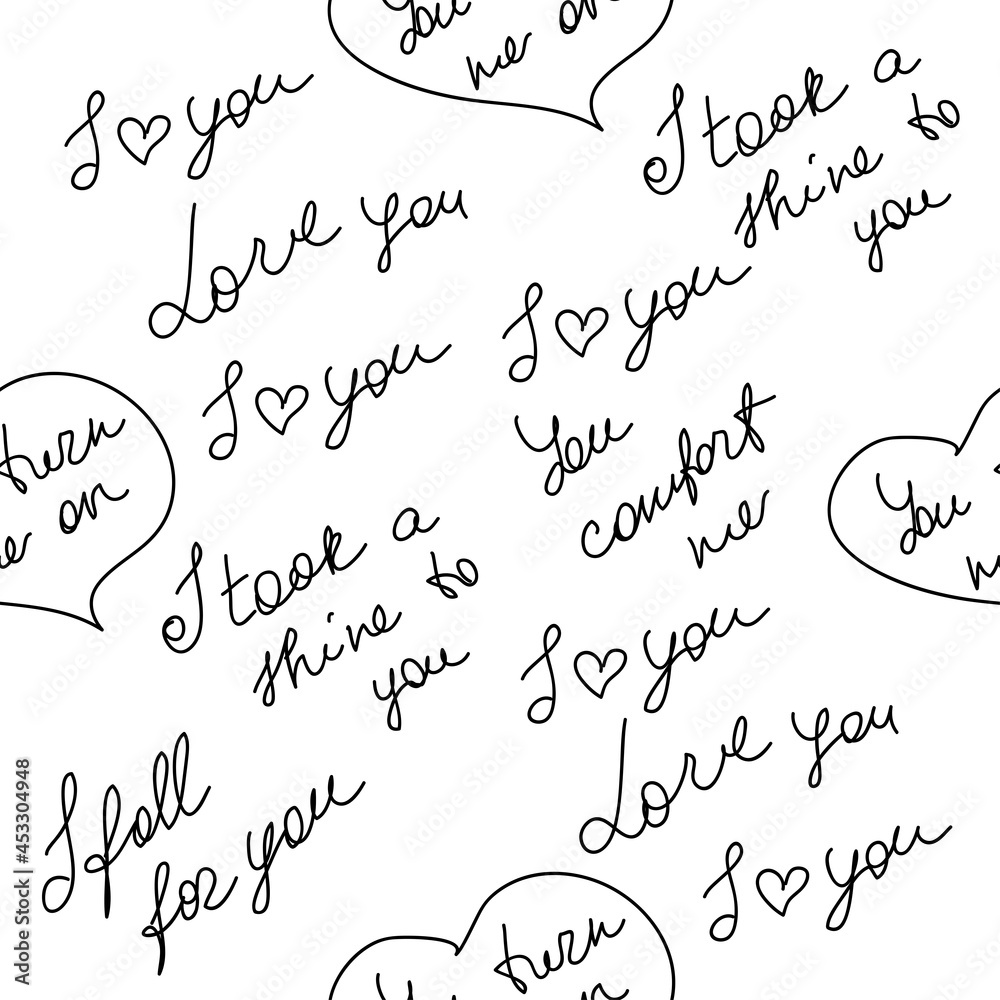 You
me on
I ♡ you
I took a
shine to
you
Love you
I ♡ you
I ♡ you
You
comfort
me
turn
me on
You
me
I took a
shine to
you
I ♡ you
Love you
I fall
for you
I ♡ you
You turn
on
Adobe Stock | #453304948